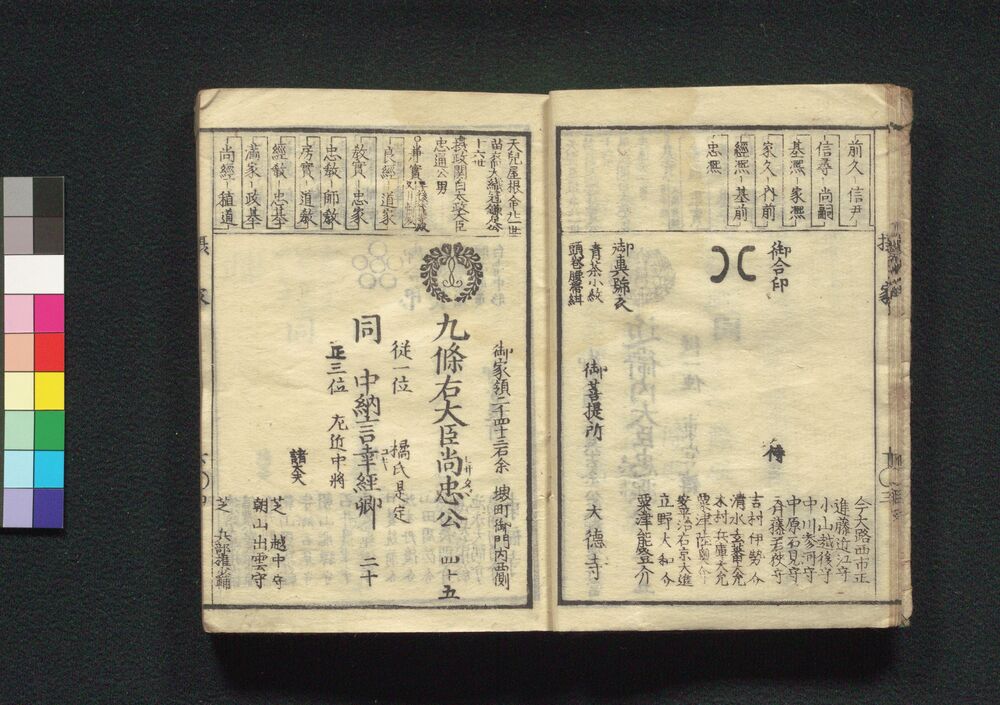 前久－信尹
信尋－尚嗣
基凞－家凞
家久－内前
經凞－基前
忠凞
御合印
御菩提所
大德寺
侍
今大路西市正
進藤近江守
小山越後守
中川参河守
中原石見守
斉藤若狭守
吉村伊勢介
清水玄蕃大允
木村兵庫大允
粟津陸奥介
立野大和介
粟津能登介
青茶小紋
十六世
攝政關白太政大臣
忠通公男
兼實
良經－道家
教實－忠家
忠教－師教
房實－道教
經教－忠基
滿家－政基
尚經－稙通
御家領二千四十三石余 堺町御門内西側
九條右大臣尚忠公 四十五
從一位 橘氏是定
同 中納言幸經卿 二十
正三位 左近中將
諸大夫
芝 越中守
朝山出雲守
芝 兵部權少輔